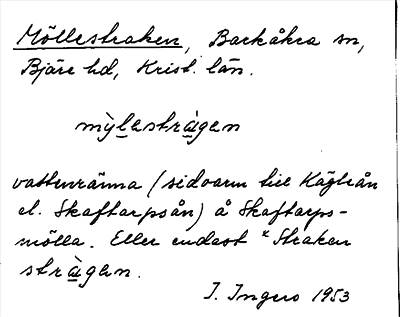 Möllestraken, Barkåkra sn,
Bjäre hd, Krist. län.
mỳlestràgen
vattenränna (sidoarm till Kägleån
el. Skaftarpsån) å Skaftarps-
mölla. Eller endast *Straken
stràgen.
I. Ingers 1953